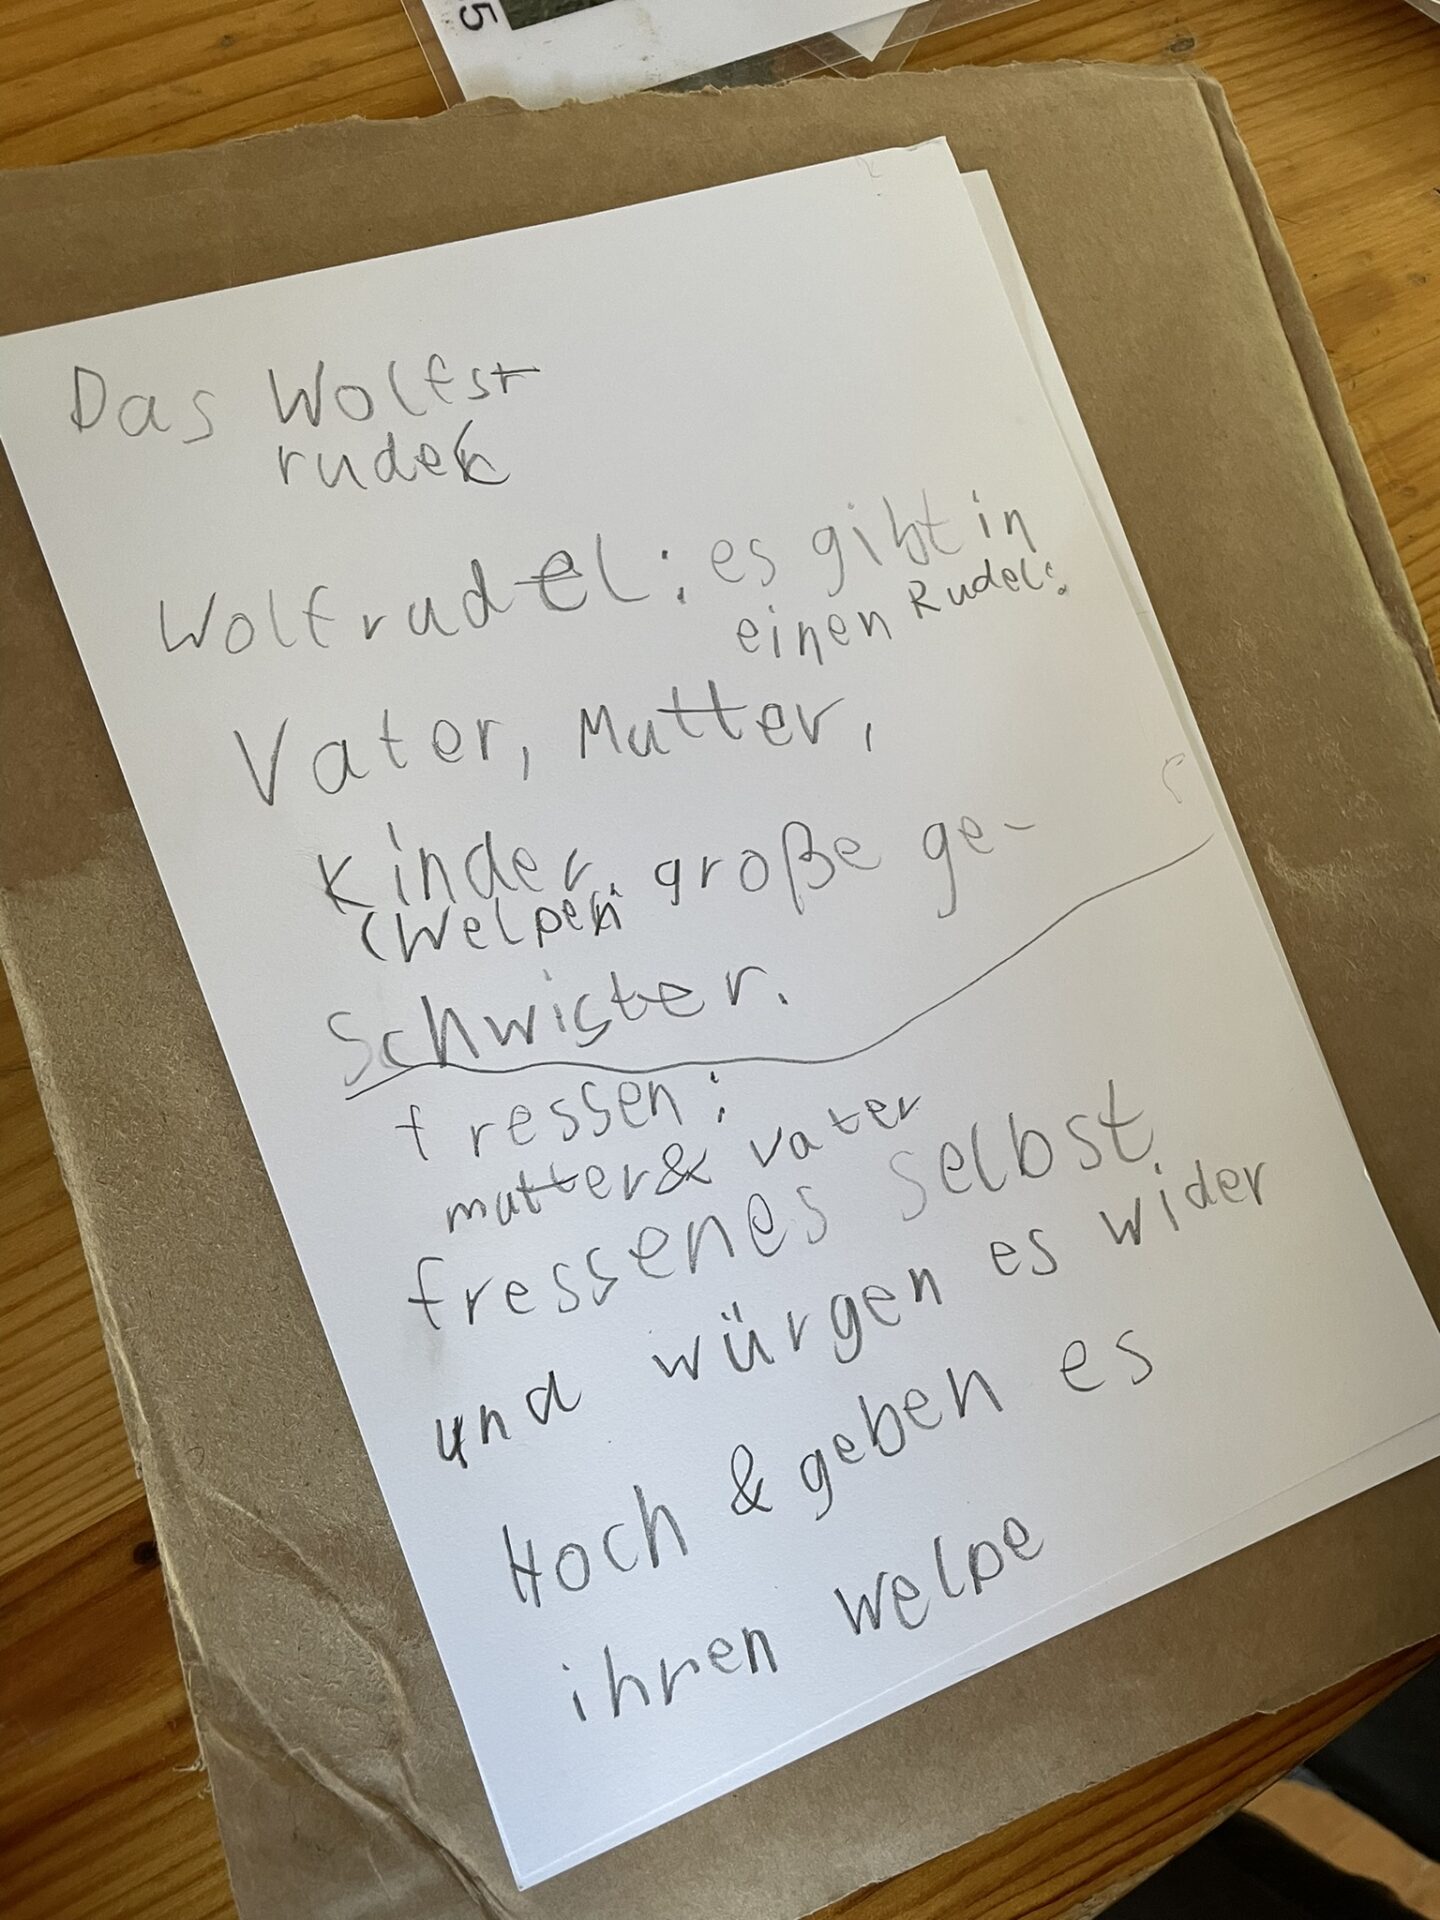 5
Das Wolfsr
rudel
Wolfrudel: es gibt in
einen Rudel:
Vater, Mutter,
Kinder, große ge-
(Welpen
Schwister.
fressen:
mutter & vater
fressenes selbst
und würgen es wider
Hoch & geben es
ihren welpe